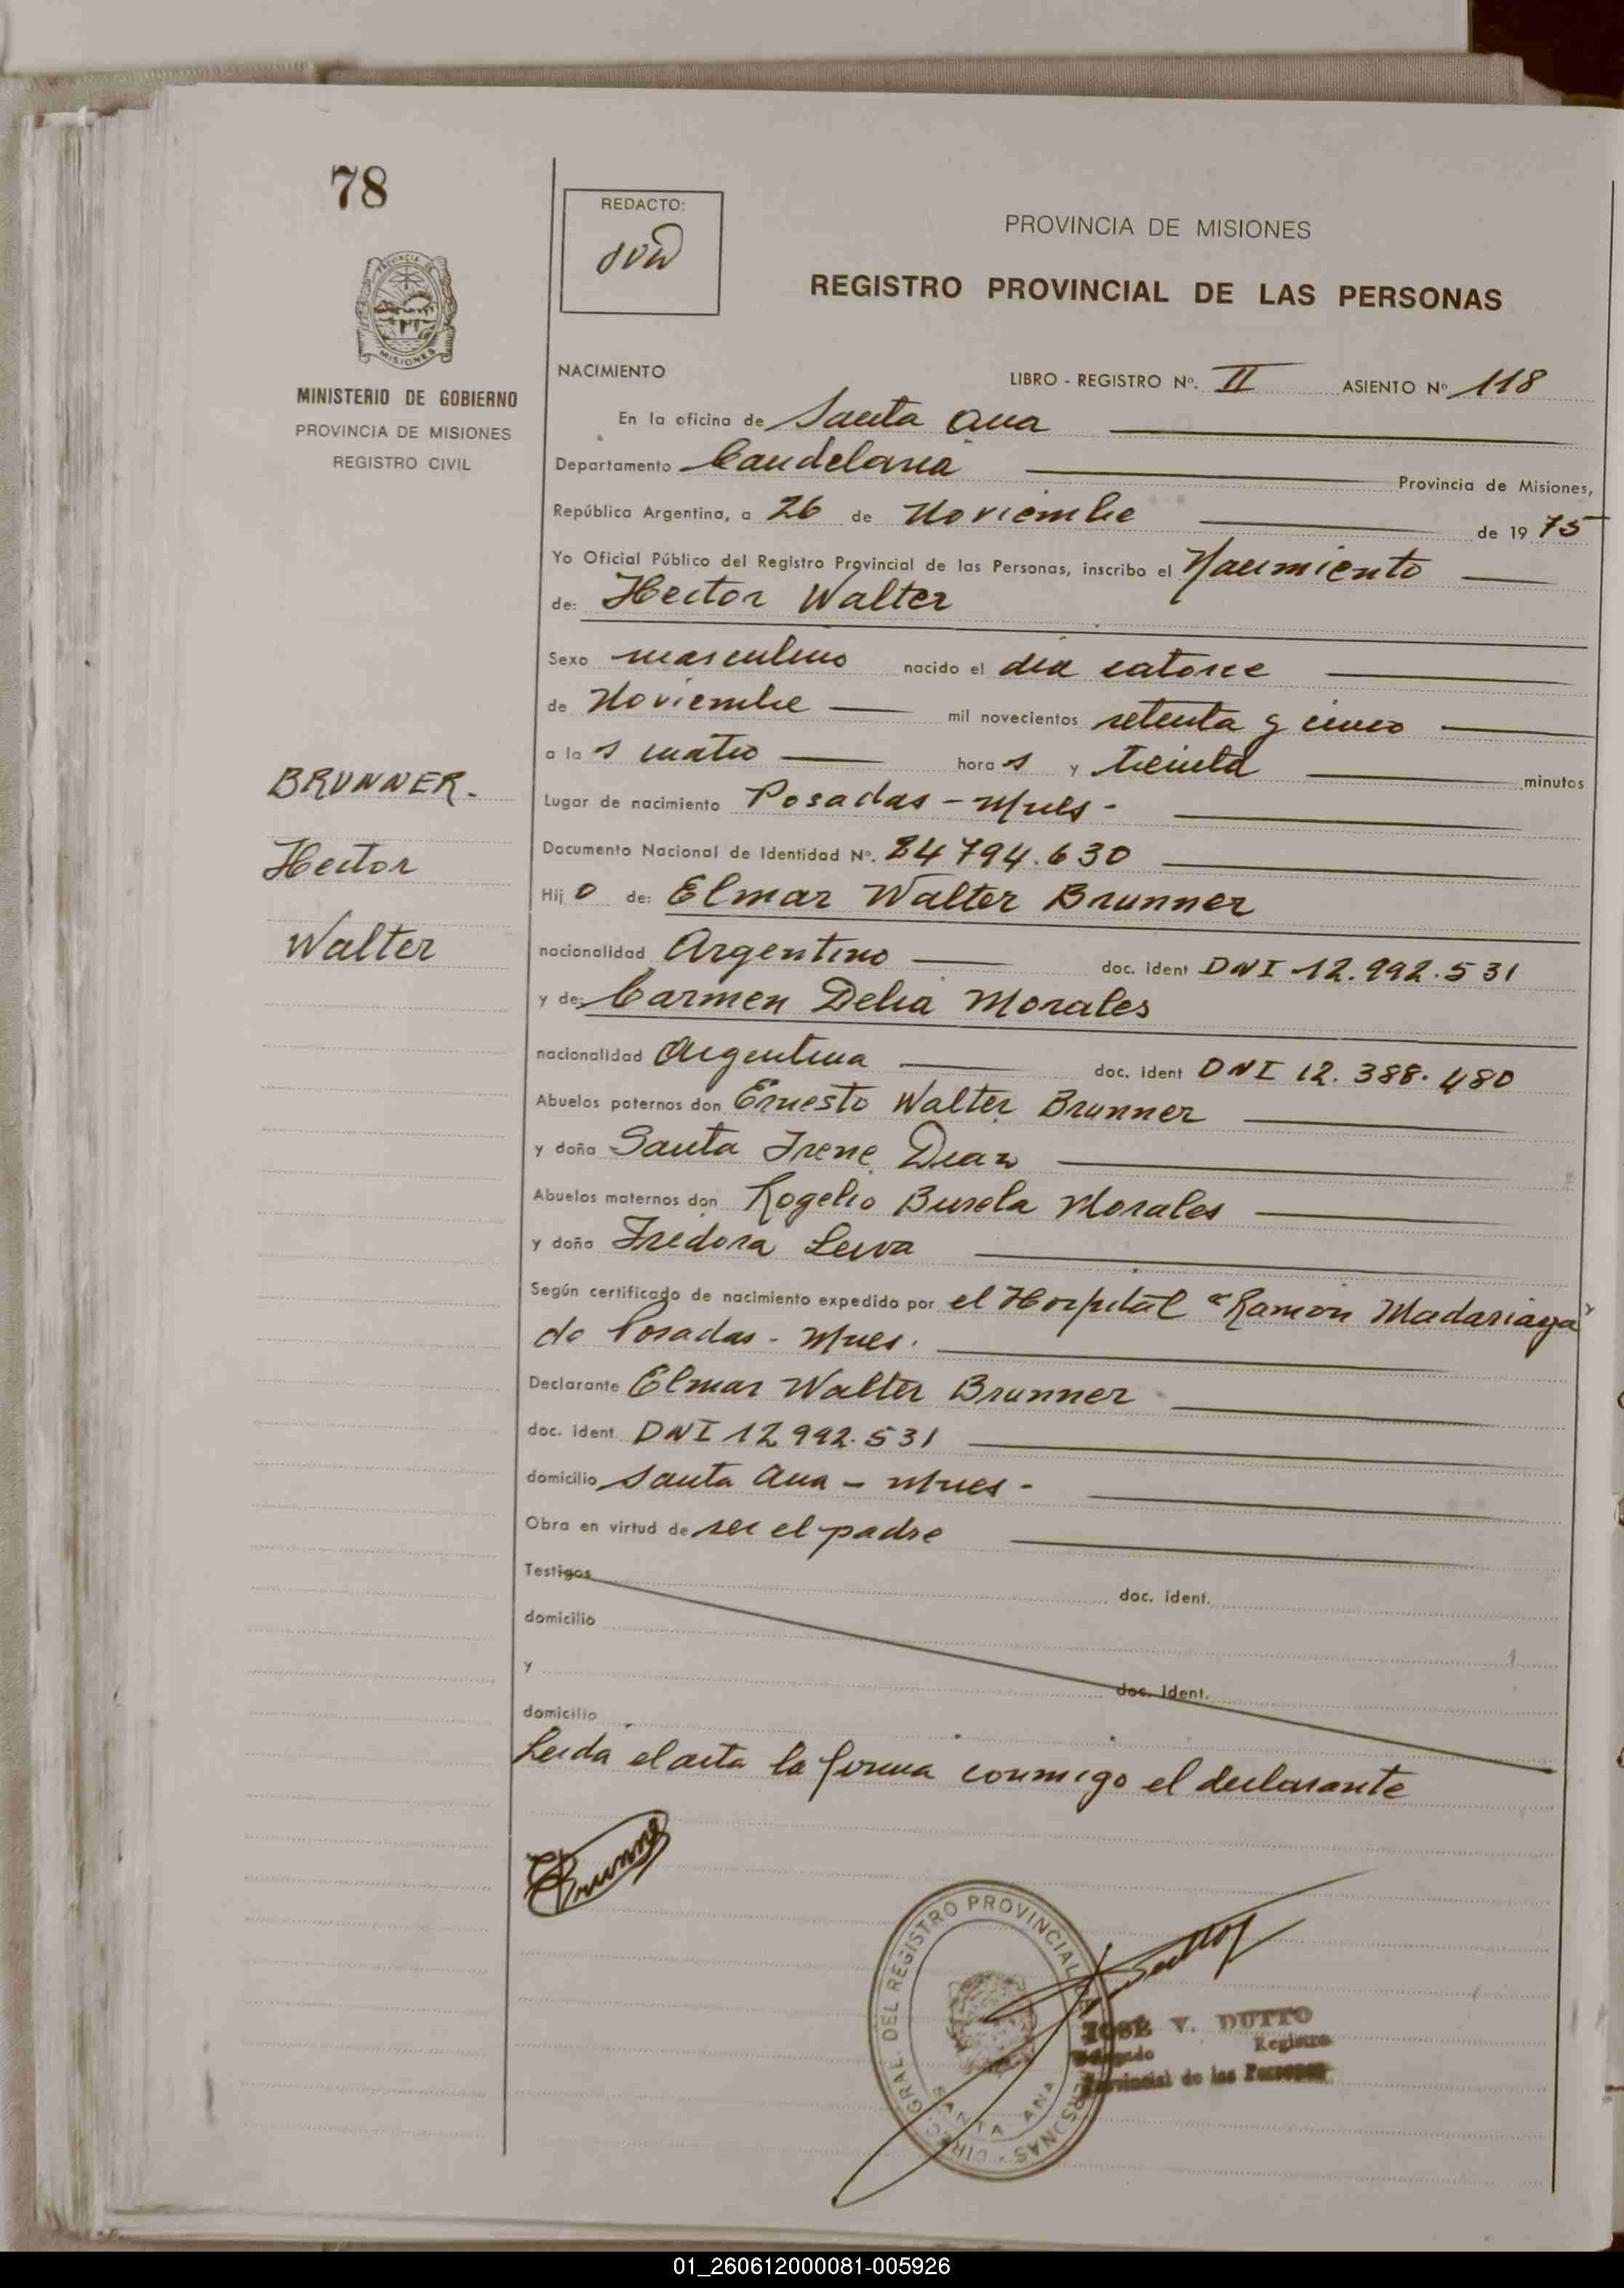 78
REDACTO:
PROVINCIA DE MISIONES
REGISTRO PROVINCIAL DE LAS PERSONAS
PROVINCIA DE
MISIONES
MINISTERIO DE GOBIERNO
PROVINCIA DE MISIONES
REGISTRO CIVIL
NACIMIENTO LIBRO - REGISTRO Nº. II ASIENTO Nº 118
En la oficina de Santa Ana
Departamento Candelaria Provincia de Misiones,
República Argentina, a 26 de Noviembre de 19 75
Yo Oficial Público del Registro Provincial de las Personas, inscribo el Nacimiento
de: Hector Walter
Sexo masculino nacido el dia catorce
de Noviembre mil novecientos setenta y cinco
a la s cuatro hora s y treinta minutos
BRUNNER.
Hector
Walter
Lugar de nacimiento Posadas - Mnes -
Documento Nacional de Identidad Nº. 24 794.630
Hij o de: Elmar Walter Brunner
nacionalidad Argentino doc. ident DNI 12.992.531
y de: Carmen Delia Morales
nacionalidad Argentina doc. ident DNI 12.388.480
Abuelos paternos don Ernesto Walter Brunner
y doña Santa Irene Diaz
Abuelos maternos don Rogelio Morales
y doña Leiva
Según certificado de nacimiento expedido por el Hospital "Ramon Madariaga"
de Posadas - Mnes.
Declarante Elmar Walter Brunner
doc. ident. DNI 12.992.531
domicilio Santa Ana - Mnes -
Obra en virtud de ser el padre
Testigos doc. ident.
domicilio
y doc. ident.
domicilio
Leida el acta la firma conmigo el declarante
Brunner
DIREC. GRAL. DEL REGISTRO PROVINCIAL DE LAS PERSONAS
SANTA ANA
JOSE V. DUTTO
Delegado Registro
Provincial de las Personas
01_260612000081-005926